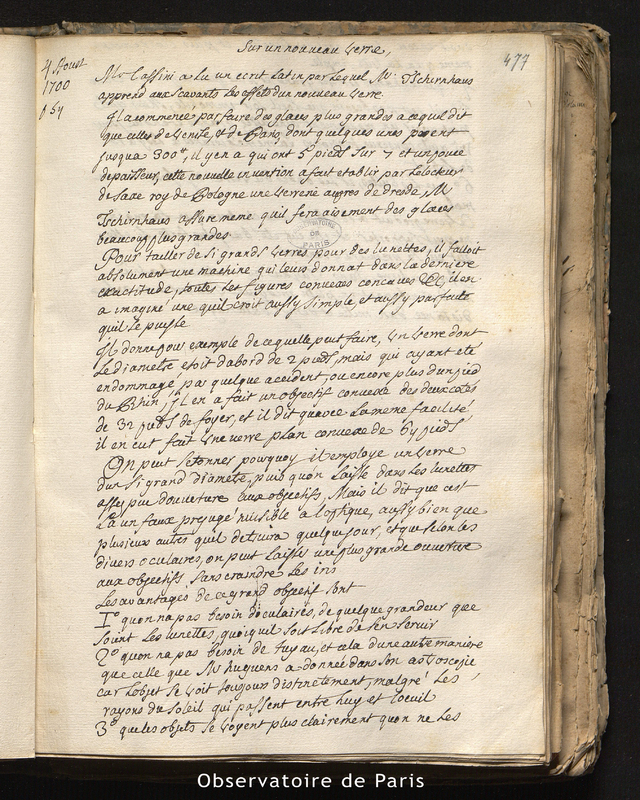 Sur un nouveau verre,
477
4 Aoust
1700
p 54
Mr Cassini a Lu un ecrit Latin par Lequel Mr. Tschirnhaus
apprend aux scavants Les effets d'un nouveau verre.
Il a commencé par faire des glaces plus grandes a ce quil dit
que celles de venise, et de Paris, dont quelques unes pesent
jusqua 300tt, il y en a qui ont 5 pieds sur 7 et un pouce
depaisseur, cette nouvelle invention a fait etablir par Lelecteur
de Saxe roy de Pologne une verrerie aupres de dresde, Mr
Tschirnhaus assure meme quil fera aisement des glaces
beaucoup plus grandes
OBSERVATOIRE DE PARIS
Pour tailler de si grands verres pour des lunettes, il falloit
absolument une machine qui leurs donnat dans la derniere
exactitude, toutes Les figures convexes concaves &c, il en
a imaginé une quil croit aussy simple, et aussy parfaite
quil se puisse
Il donne pour exemple de ce quelle peut faire, un verre dont
Le diametre etoit dabord de 2 pieds, mais qui ayant eté
endommagé par quelque accident, ou encore plus d'un pied
du Rhin, Il en a fait un objectif convexe des deux cotés
de 32 pieds de foyer, et il dit quavec La meme facilité
il en eut fait une verre plan convexe de 64 pieds
On peut setonner pourquoy il employe un verre
dun si grand diametre, puis quon Laisse dans Les lunettes
assez peu douverture aux objectifs, Mais il dit que cest
La un faux prejugé nuisible a loptique, aussy bien que
plusieurs autres quil detruira quelque jour, et que selon les
divers oculaires, on peut Laisser une plus grande ouverture
aux objectifs sans craindre Les iris
Les avantages de ce grand objectif sont
1o quon na pas besoin doculaires, de quelque grandeur que
soient Les lunettes, quoiquil soit Libre de sen servir
2o quon na pas besoin de tuyau, et cela dune autre maniere
que celle que Mr huguens a donnée dans son astroscopie
car Lobjet se voit toujours distinctement, malgré Les
rayons du soleil qui passent entre luy et loeuil
3o que les objets se voyent plus clairement quon ne Les
Observatoire de Paris